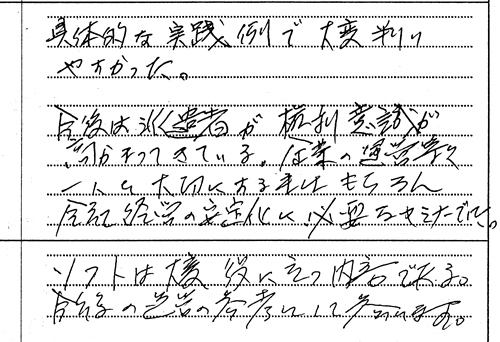 具体的な実践例で大変判り
やすかった。
今後は従業者が権利意識が
高かまってきている。企業の運営も
一人を大切にする事はもちろん
会社経営の安定化に必要なセミナーでした。
ソフトは大変役に立つ内容である。
今後の運営の参考にして参ります。